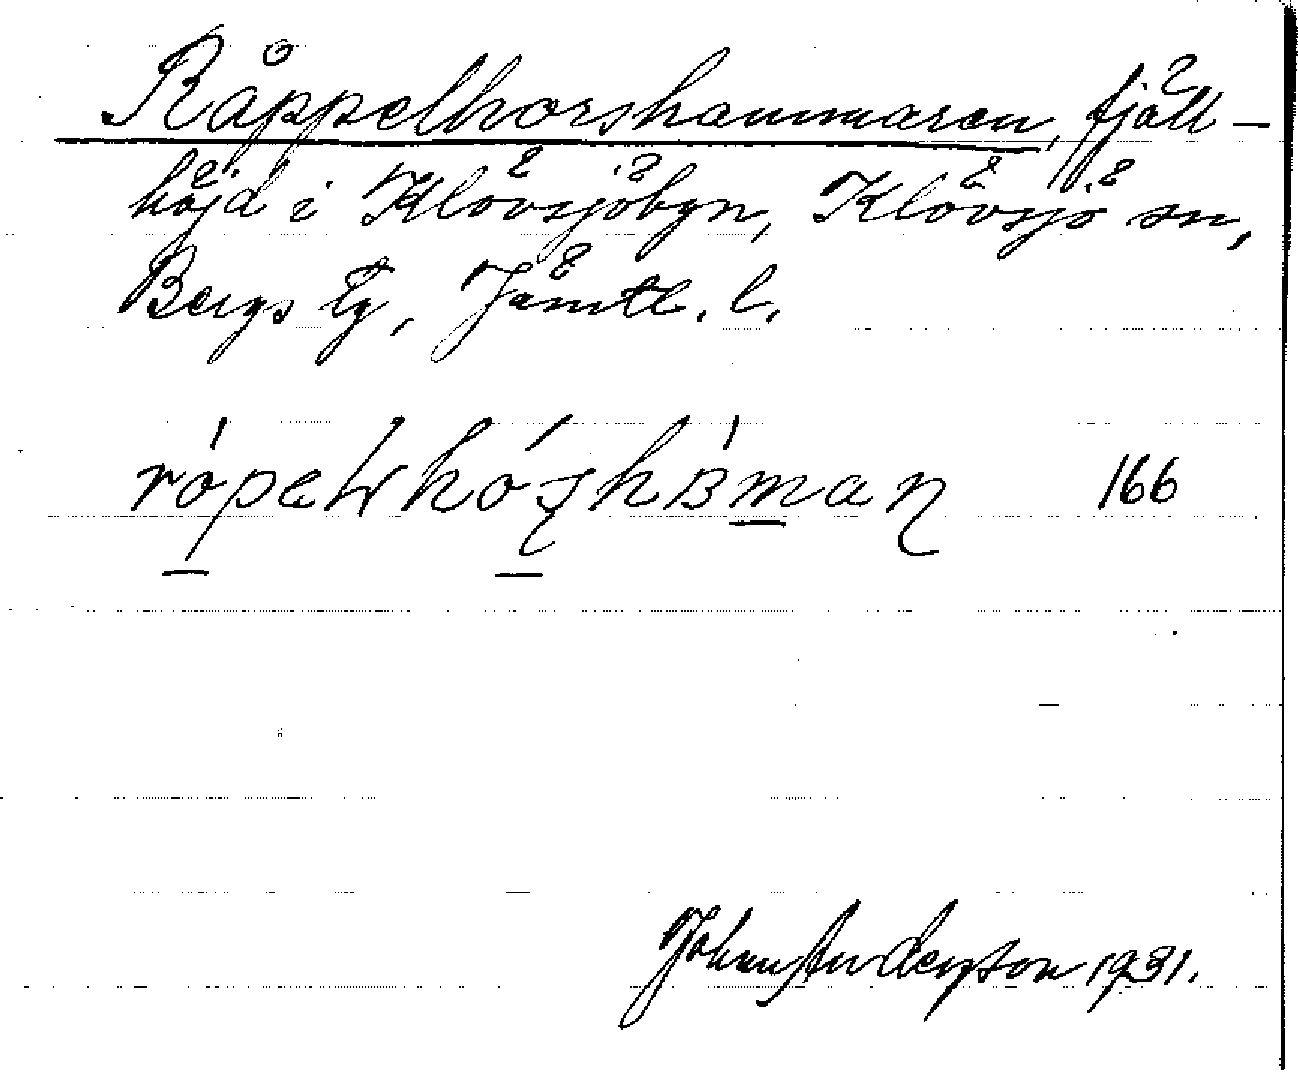 Råppelhorshammaren, fjäll-
höjd i Klövsjöbyn, Klövsjö sn,
Bergs tg, Jämtl. l.
166
John Anderson 1931.